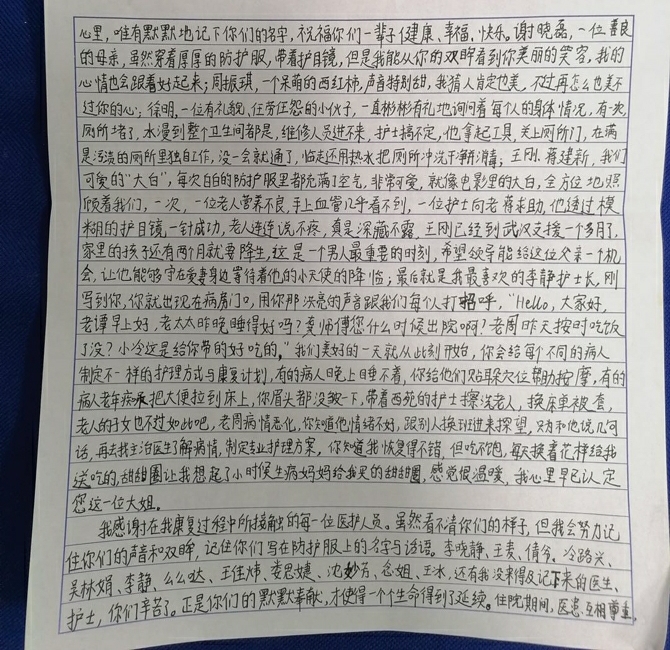 心里，唯有默默地记下你们的名字，祝福你们一辈子健康、幸福、快乐。谢晓磊，一位善良
的母亲，虽然穿着厚厚的防护服，带着护目镜，但是我能从你的双眸看到你美丽的笑容，我的
心情也会跟着好起来；周振琪，一个呆萌的西红柿，声音特别甜，我猜人肯定也美，不过再怎么也美不
过你的心；徐明，一位有礼貌、任劳任怨的小伙子，一直彬彬有礼地询问着每个人的身体情况，有一次，
厕所堵了，水漫到整个卫生间都是，维修人员进不来，护士搞不定，他拿起工具，关上厕所门，在满
是污渍的厕所里独自工作，没一会就通了，临走还用热水把厕所冲洗干净消毒；王刚、蒋建新，我们
可爱的“大白”，每次白白的防护服里都充满了空气，非常可爱，就像电影里的大白，全方位地照
顾着我们，一次，一位老人营养不良，手上血管几乎看不到，一位护士向老蒋求助，他透过模
糊的护目镜，一针成功，老人连连说不疼，真是深藏不露，王刚已经到武汉支援一个多月了，
家里的孩子还有两个月就要降生，这是一个男人最重要的时刻，希望领导能给这位父亲一个机
会，让他能够守在爱妻身边等待着他的小天使的降临；最后就是我最喜欢的李静护士长，刚
写到你，你就出现在病房门口，用你那洪亮的声音跟我们每个人打招呼，“Hello，大家好，
老谭早上好，老太太昨晚睡得好吗？龚师傅您什么时候出院啊？老周昨天按时吃饭
了没？小冷这是给你带的好吃的。”我们美好的一天就从此刻开始，你会给每个不同的病人
制定不一样的护理方式与康复计划，有的病人晚上睡不着，你给他们贴耳穴位帮助按摩，有的
病人老年痴呆把大便拉到床上，你眉头都没皱一下，带着西苑的护士擦洗老人，换床单被套，
老人的子女也不过如此吧，老周病情恶化，你知道他情绪不好，跟别人换班进来探望，只为和他说几句
话，再去找主治医生了解病情，制定专业护理方案，你知道我恢复得不错，但吃不饱，每天换着花样给我
送吃的，甜甜圈让我想起了小时候生病妈妈给我买的甜甜圈，感觉很温暖，我心里早已认定
您这一位大姐。
我感谢在我康复过程中所接触的每一位医护人员。虽然看不清你们的样子，但我会努力记
住你们的声音和双眸，记住你们写在防护服上的名字与话语。李晓静、王麦、倩兮、冷路兴、
吴林娟、李静、么么哒、王佳炜、娄思婕、沈妙芳、念姐、王冰，还有我没来得及记下来的医生、
护士，你们辛苦了。正是你们的默默奉献，才使得一个个生命得到了延续。住院期间，医患互相尊重，